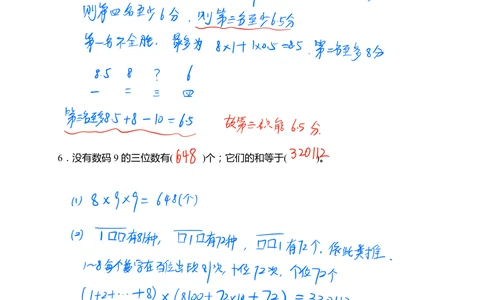 则第四名至少6分，则第三名至少6.5分
第一名不全胜，最多为 8×1+1×0.5=8.5，第二名至多8分
8.5 8 ? 6
一 二 三 四
第三名至多8.5+8-10=6.5
故第三只能6.5分.
6．没有数码9的三位数有( 648 )个；它们的和等于( 320112 )。
(1) 8×9×9= 648(个)
(2) 1□□有81种，□1□有72种，□□1有72个，依此类推.
1~8每个数字在百位出现81次，十位72次，个位72个
(1+2+…+8)×(8100+72×10+72)=320112